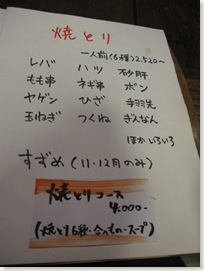 焼とり
一人前(6種)2,520〜
レバ ハツ 砂肝
もも串 ネギ串 ボン
ヤゲン ひざ 手羽先
玉ねぎ つくね ぎんなん
ほかいろいろ
すずめ(11・12月のみ)
焼とりコース
4,000-
(焼とり6種・合いもの・スープ)